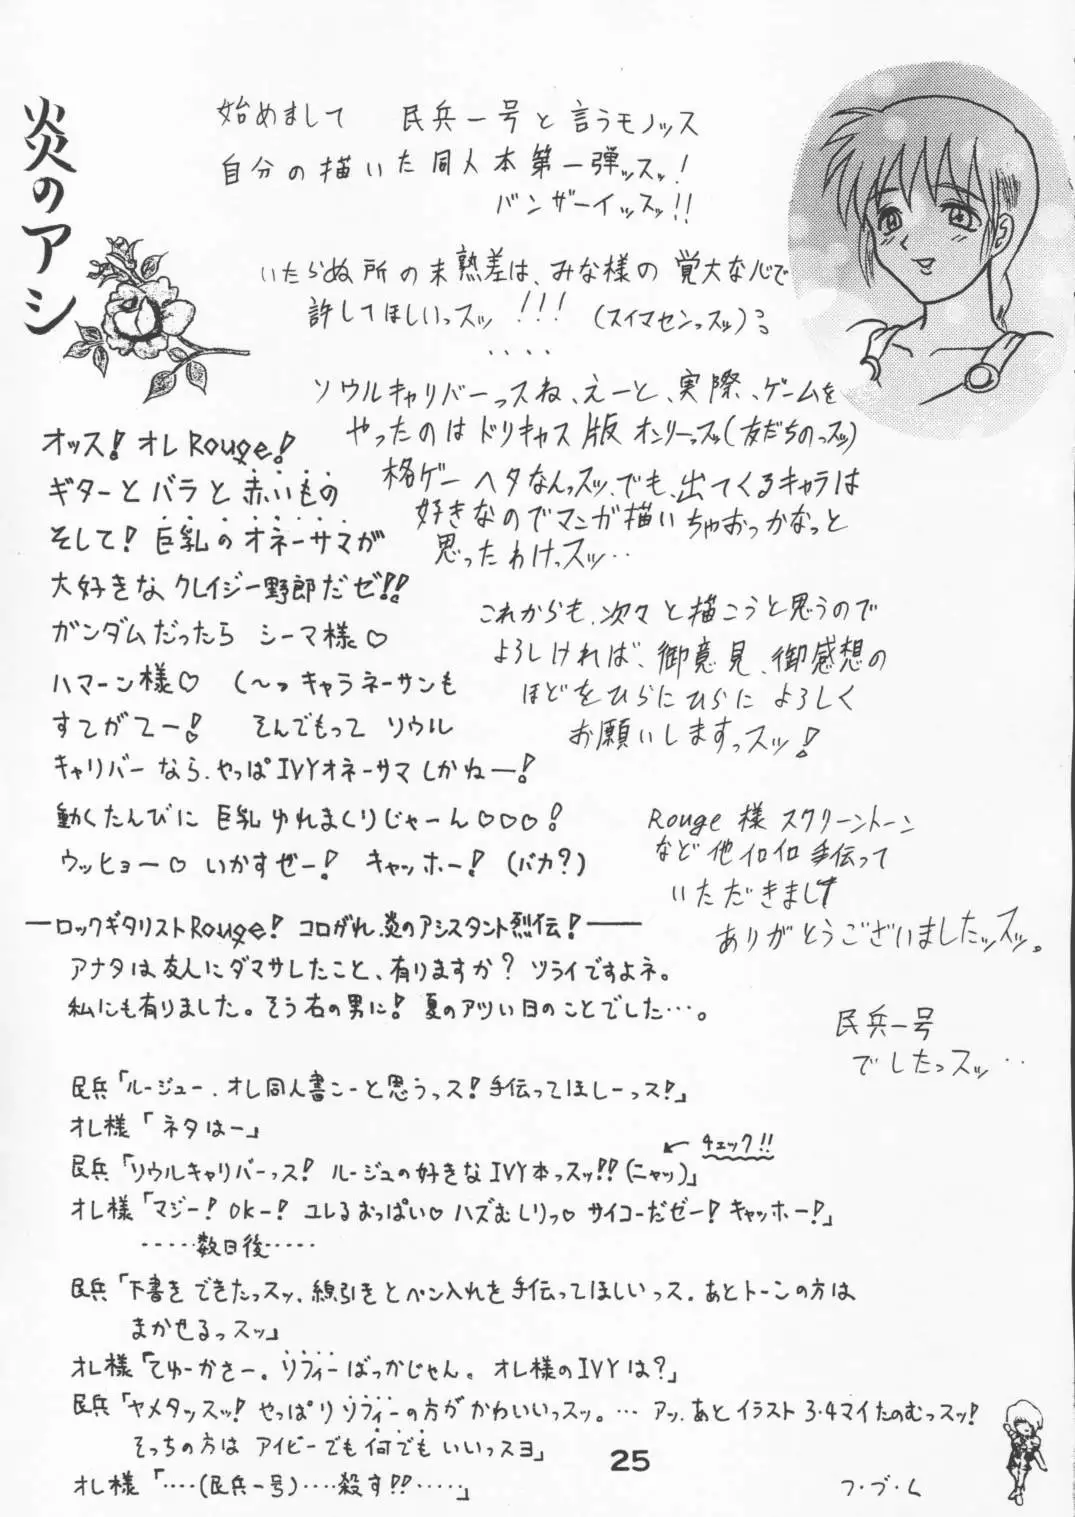 始めまして 民兵一号と言うモノッス
自分の描いた同人本第一弾ッスッ!
バンザーイッスッ!!
いたらぬ所の未熟差は、みな様の覚大な心で
許してほしいっスッ!!!(スイマセンっスッ)
・・・・
ソウルキャリバーっスね、えーと、実際、ゲームを
やったのはドリキャス版オンリーっスッ(友だちのっスッ)
格ゲーヘタなんっスッ、でも、出てくるキャラは
好きなのでマンガ描いちゃおっかなっと
思ったわけっスッ・・
これからも、次々と描こうと思うので
よろしければ、御意見、御感想の
ほどをひらにひらによろしく
お願いしますっスッ!
Rouge様 スクリーントーン
など他イロイロ手伝って
いただきまし
ありがとうございましたッスッ。
民兵一号
でしたっスッ・・
炎のアシ
オッス!オレRouge!
ギターとバラと赤いもの
そして!巨乳のオネーサマが
大好きなクレイジー野郎だゼ!!
ガンダムだったら シーマ様♡
ハマーン様♡ (〜っキャラネーサンも
すてがてー! そんでもって ソウル
キャリバーなら、やっぱIVYオネーサマしかねー!
動くたんびに 巨乳ゆれまくりじゃーん♡♡♡!
ウッヒョー♡ いかすぜー! キャッホー!(バカ?)
―ロックギタリストRouge! コロがれ、炎のアシスタント烈伝!―
アナタは友人にダマサレたこと、有りますか? ツライですよネ。
私にも有りました。そう右の男に! 夏のアツい日のことでした…。
民兵「ルージュー、オレ同人書こーと思うっス!手伝ってほしーっス!」
オレ様「ネタはー」
チェック!!
民兵「ソウルキャリバーっス! ルージュの好きなIVY本っスッ!!(ニャッ)」
オレ様「マジー! OKー! ユレるおっぱい♡ ハズむしりっ♡ サイコーだゼー! キャッホー!」
‥‥‥数日後‥‥‥
民兵「下書きできたっスッ、線引きとペン入れを手伝ってほしいっス、あとトーンの方は
まかせるっスッ」
オレ様「てゆーかさー。ソフィーばっかじゃん。オレ様のIVYは?」
民兵「ヤメタッスッ! やっぱりソフィーの方がかわいいっスッ。… アッ、あとイラスト3・4マイたのむっスッ!
そっちの方はアイビーでも何でもいいっスヨ」
オレ様「‥‥(民兵一号)‥‥殺す!!‥‥‥」
25
フ・ヅ・ム